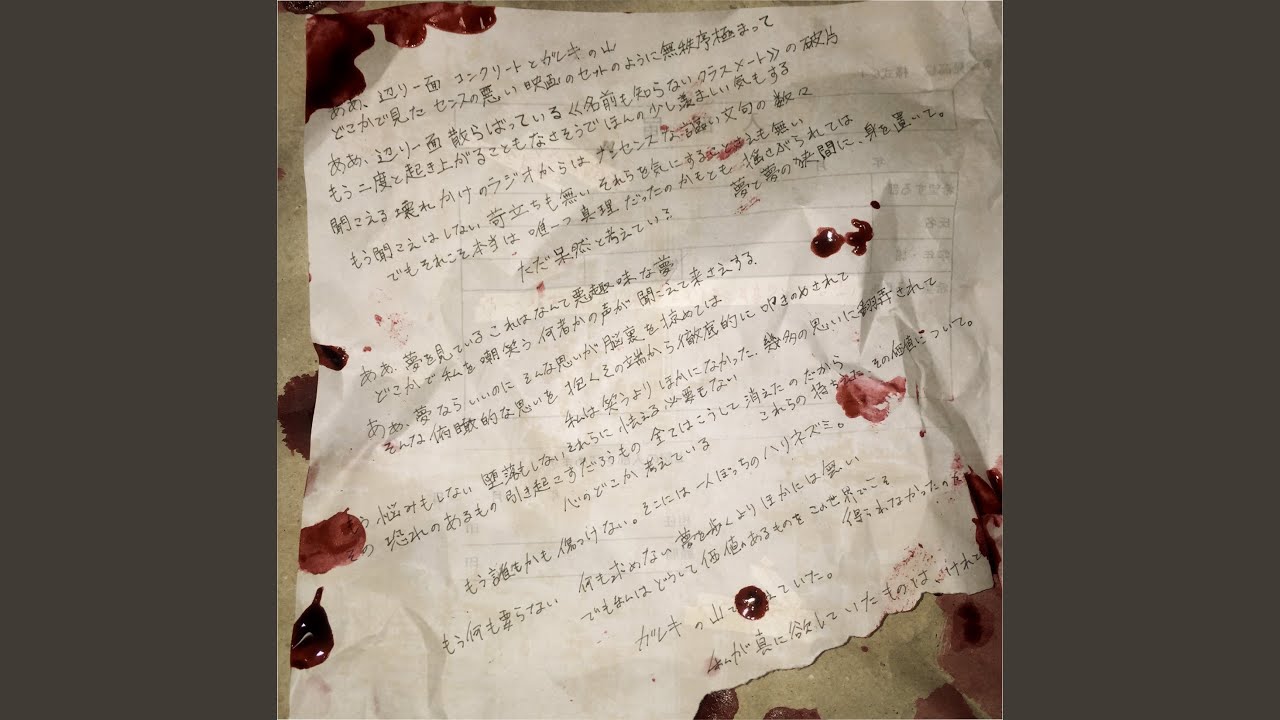 ああ、辺り一面 コンクリートとガレキの山
どこかで見た センスの悪い 映画のセットのように無秩序極まって
ああ、辺り一面 散らばっている《名前も知らないクラスメート》の破片
もう二度と起き上がることもなさそうで ほんの少し羨ましい気もする
聞こえる壊れかけのラジオからは ナンセンスな 文句の数々
もう聞こえはしない 苛立ちも無い それらを気にすることさえも無い
でもそれこそ本当は 唯一つ真理だったのかもとも 揺さぶられては
ただ呆然と考えている 夢と夢の狭間に、身を置いて。
ああ、夢を見ている これはなんて悪趣味な夢
どこかで私を嘲笑う 何者かの声が 聞こえて来さえする、
ああ、夢ならいいのに そんな思いが脳裏を掠めては
そんな俯瞰的な思いを 抱くその端から徹底的に 叩きのめされて
私は笑うよりほかになかった、幾多の思いに翻弄されて
もう 悩みもしない 堕落もしない それらに怯える必要もない
その 恐れのあるもの 引き起こすだろうもの 全てはこうして消えたのだから
心のどこか 考えている これらの持ちえた その価値について。
もう誰もかも 傷つけない。そこには 一人ぼっちのハリネズミ。
もう何も要らない 何も求めない 夢を歩くよりほかには無い
でも私はどうして 価値のあるものを この世界でこそ 得られなかったのか
ガレキの山で ていた。
私が真に欲していたものは、けれど
希望する
氏名